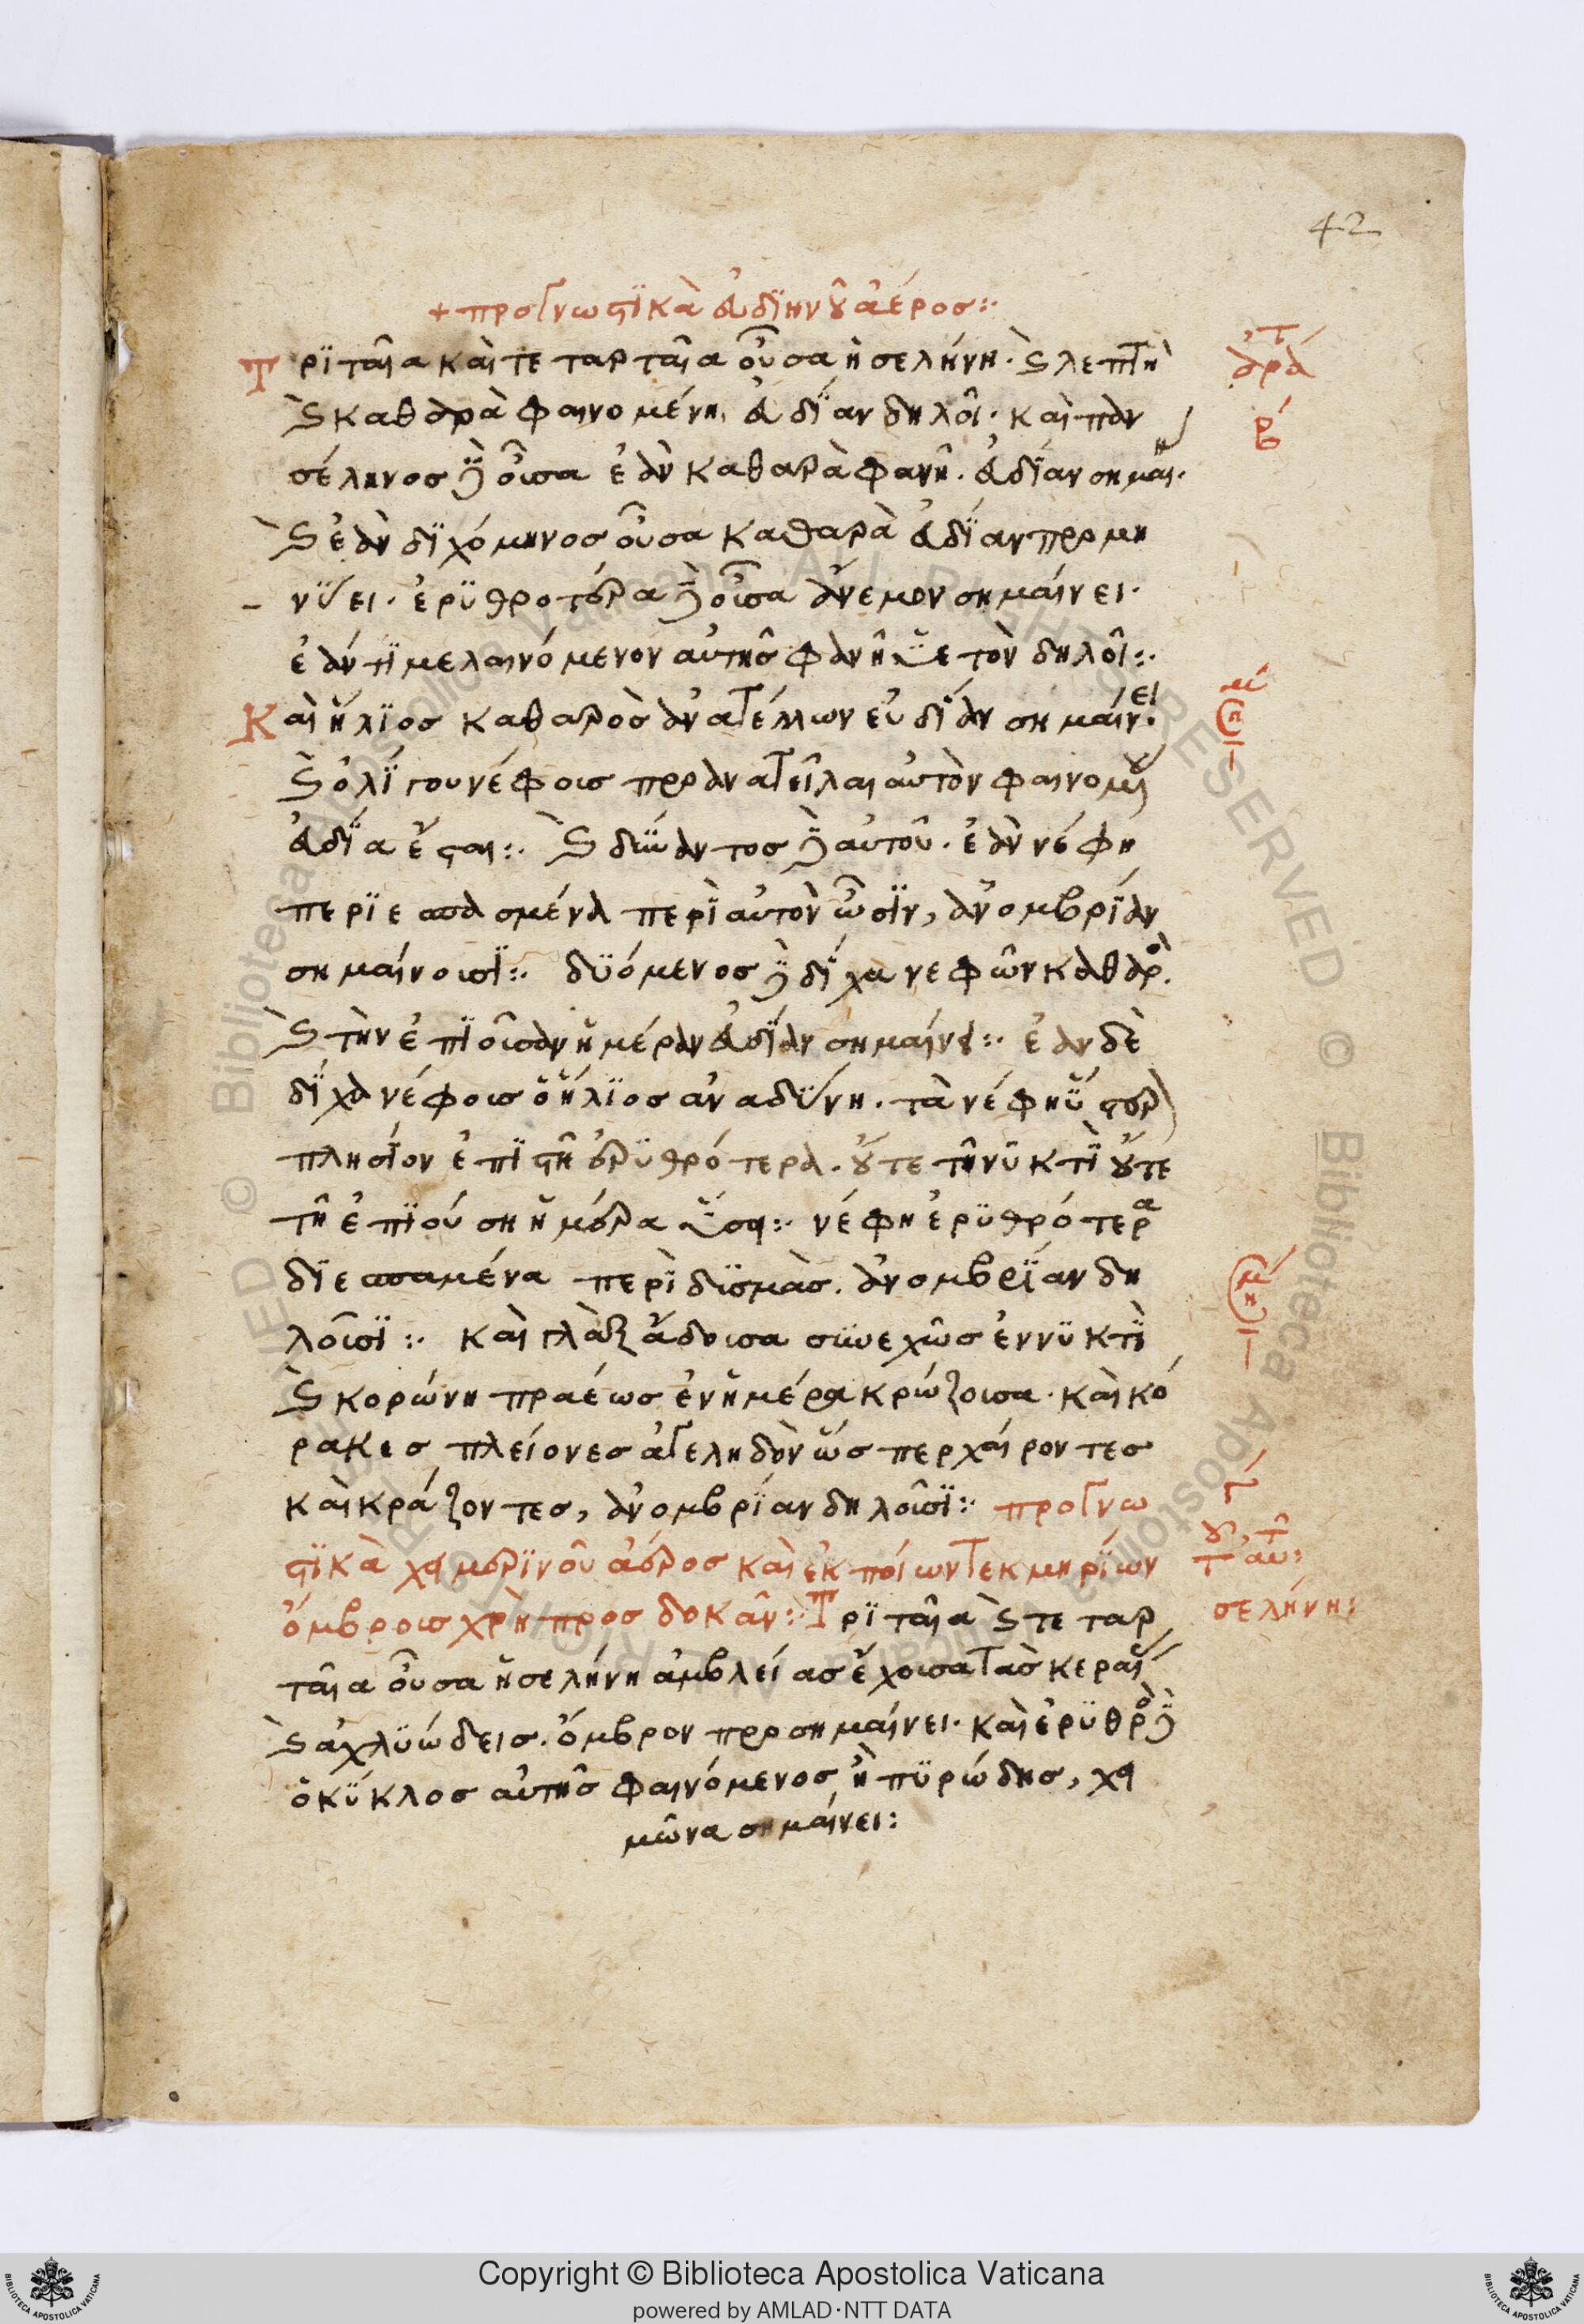 42
+ προγνωστϊκὰ εὐδϊηνοῦ ἀέρος :·
Τρϊταῖα καὶ τεταρταῖα οὖσα ἡ σελήνη · καὶ λεπτὴ
καὶ καθαρὰ φαινομένη, εὐδΐαν δηλοῖ · καὶ παν
σέληνος δὲ οὖσα ἐὰν καθαρὰ φανῆ · εὐδΐαν σημαι·
καὶ ἐὰν δϊχόμηνος οὖσα καθαρὰ εὐδΐαν προμη
νΰει · ἐρϋθροτέρα δὲ οὖσα ἄνεμον σημαίνει ·
ἐάν τϊ μελαινόμενον αὐτῆς φανῆ ὑετὸν δηλοῖ :·
Καὶ ἥλϊος καθαρὸς ἀνατέλλων εὐδΐαν σημαίνει·
καὶ ὀλΐγου νέφους πρὸ ἀνατεῖλαι αὐτὸν φαινομέ
εὐδΐα ἔσται :· καὶ δύναντος δὲ αὐτοῦ · ἐὰν νέφη
περϊεσπασμένα περῒ αὐτὸν ὦσϊν, ἀνομβρΐαν
σημαίνουσϊ :· δϋόμενος δὲ δΐχα νεφῶν καθαρὸ·
καὶ τὴν ἐπϊοῦσαν ἡμέραν εὐδΐαν σημαίνει :· ἐὰν δὲ
δΐχα νέφους ὁ ἥλϊος ἀναδΰνη · τὰ νέφη ὕστερ
πλησΐον ἐπϊστῆ ἐρϋθρότερα · οὔτε τῆ νϋκτῒ οὔτε
τῆ ἐπϊούση ἡμέρα ὕσει :· νέφη ἐρϋθρότερα
δϊεσπαμένα περῒ δϋσμὰς · ἀνομβρΐαν δη
λοῦσϊ :· καὶ γλὰξ ἄδουσα συνεχῶς ἐν νϋκτῒ
καὶ κορώνη πραέως ἐν ἡμέρα κρώζουσα · καὶ κό
ρακες πλείονες ἀγεληδὸν ὥσπερ χαίροντες
καὶ κράζοντες, ἀνομβρΐαν δηλοῦσϊ :· προγνω
στϊκὰ χειμερϊνοῦ ἀέρος καὶ ἐκ ποίων τεκμηρΐων
ὄμβρους χρὴ προσδοκᾶν :· Τρϊταῖα καὶ τεταρ
ταῖα οὖσα ἡ σελήνη ἀμβλείας ἔχουσα τὰς κεραί
καὶ ἀχλϋώδεις · ὄμβρον προσημαίνει · καὶ ἐρϋθρὸ δὲ
ὁ κΰκλος αὐτῆς φαινόμενος ἢ πϋρώδης, χει
μῶνα σημαίνει :
σελήνη :
Copyright © Biblioteca Apostolica Vaticana
powered by AMLAD·NTT DATA